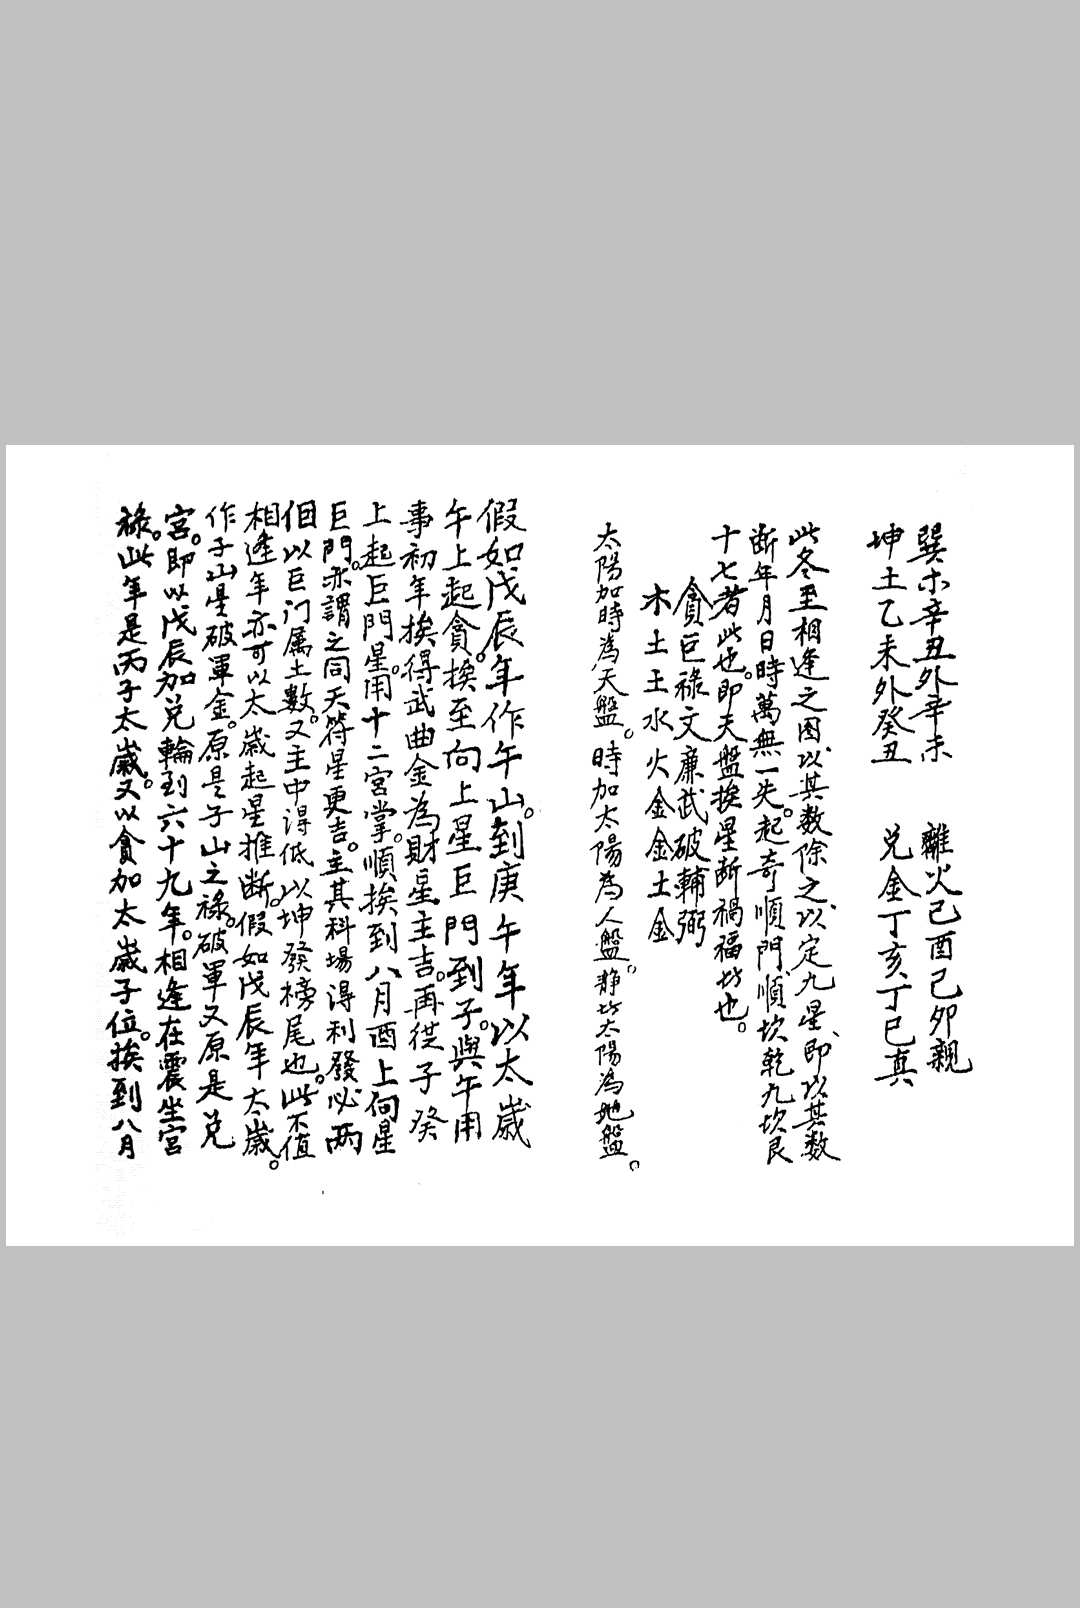 巽木辛丑外辛未　離火己酉己卯親
坤土乙未外癸丑　兌金丁亥丁巳真
此冬至相逢之图以其数除之以定九星即以其数
断年月日時萬無一失。起奇順門順坎乾九坎艮
十七者此也。即天盤挨星断禍福坊也。
貪巨禄文廉武破輔弼
木土土水火金金土金
太陽加時為天盤。時加太陽為人盤。静坊太陽為地盤。
假如戊辰年作午山。到庚午年以太歲
午上起貪。挨至向上星巨門到子。與午用
事初年挨得武曲金為財星主吉。再從子癸
上起巨門星。用十二宮掌。順挨到八月酉上向星
巨門。亦謂之同天符星更吉。主其科場得利發必两
佪以巨门属土數。又主中得低以坤發榜尾也。此不值
相逢年亦可以太歲起星推断。假如戊辰年太歲。
作子山星破軍金。原是子山之禄。破軍又原是兌
宮。即以戊辰加兌輪到六十九年。相逢在震坐宮
禄。此年是丙子太歲。又以貪加太歲子位。挨到八月